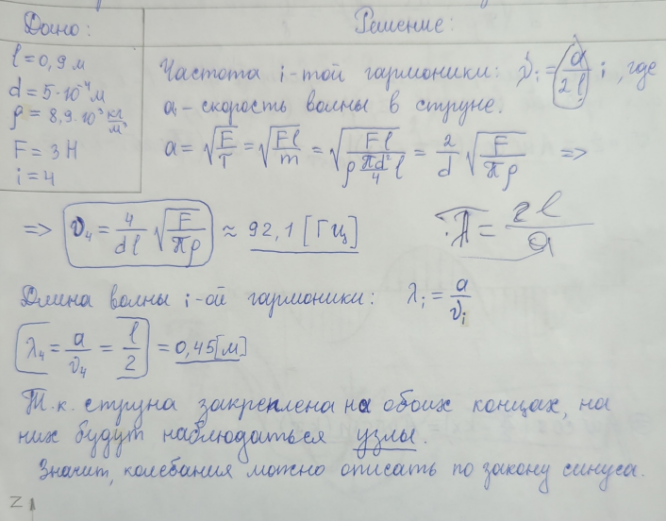 Дано:
Решение:
l = 0,9 м
d = 5·10⁻⁴ м
ρ = 8,9·10³ кг/м³
F = 3 Н
i = 4
Частота i-той гармоники: ν_i = a/(2l) i, где
a - скорость волны в струне.
a = √(F/τ) = √(Fl/m) = √(Fl/(ρ (πd²/4) l)) = 2/d √(F/(πρ)) =>
=> ν₄ = 4/(dl) √(F/(πρ)) ≈ 92,1 [Гц]
= 2l/a
Длина волны i-ой гармоники: λ_i = a/ν_i
λ₄ = a/ν₄ = l/2 = 0,45 [м]
Т.к. струна закреплена на обоих концах, на
них будут наблюдаться узлы.
Значит, колебания можно описать по закону синуса.